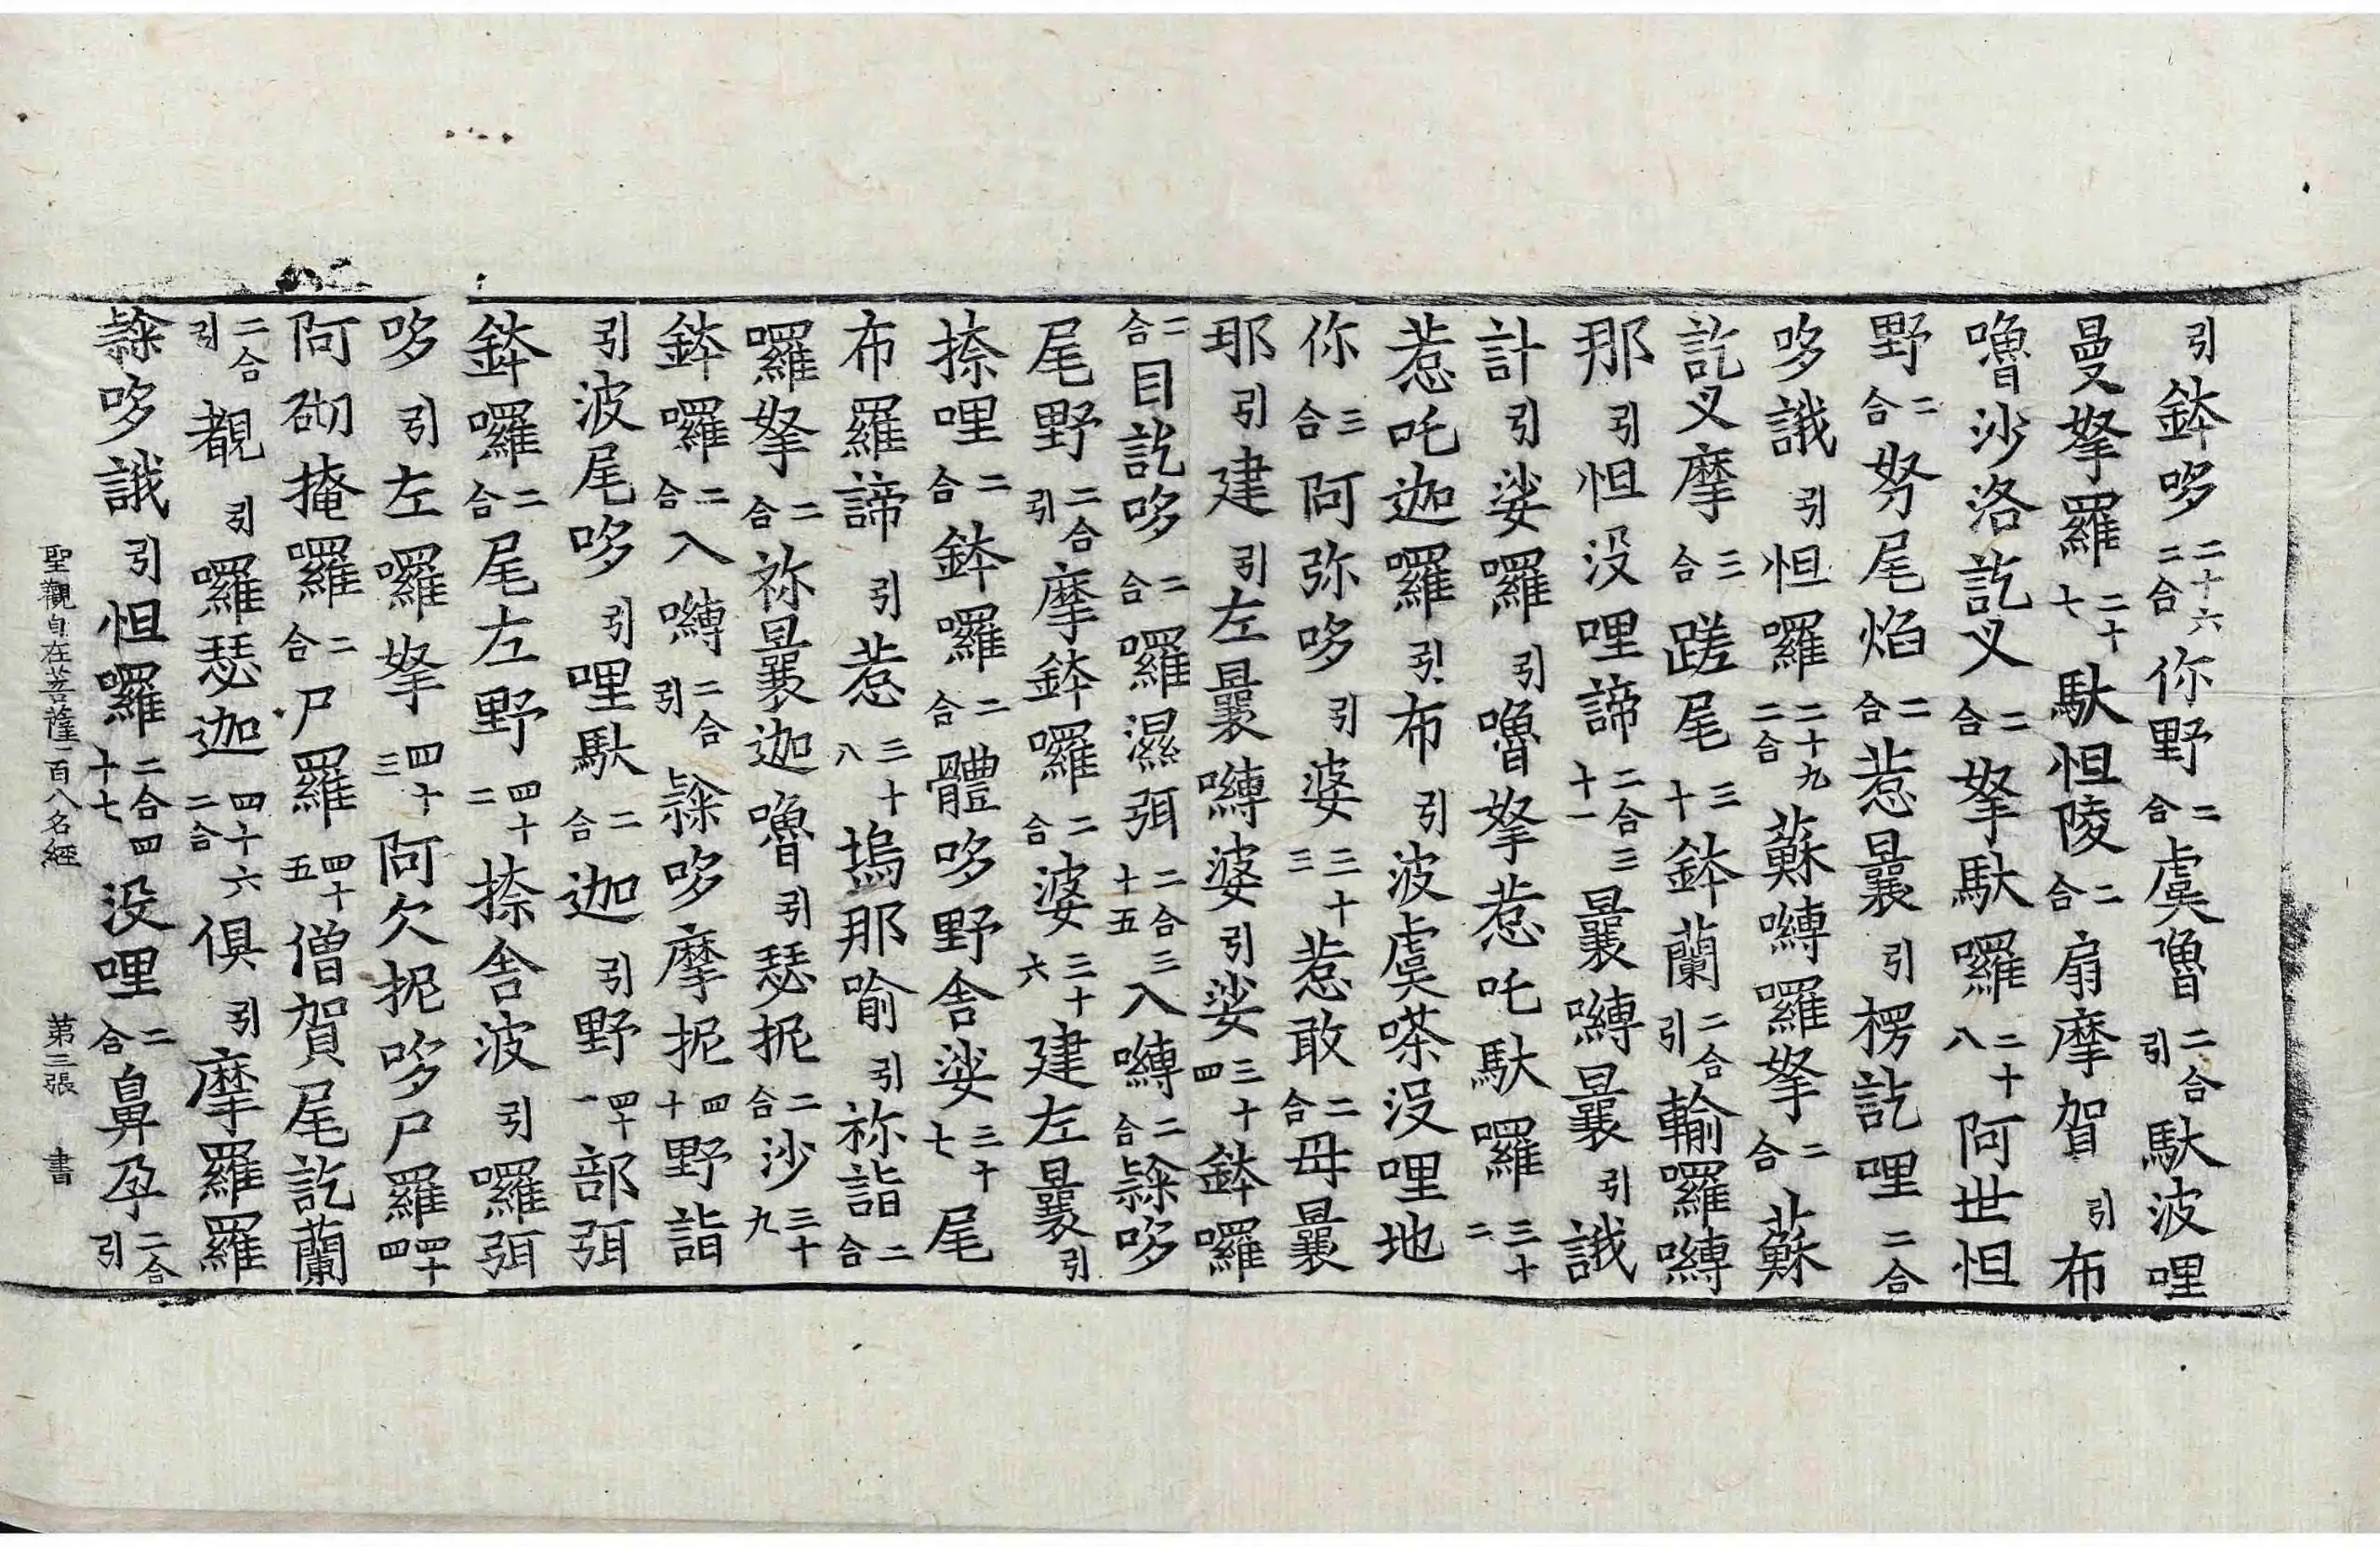 引鉢哆二十六二合你野二合虞嚕二合引馱波哩
曼拏羅二十七馱怛陵二合扇摩賀引布
嚕沙洛訖叉二合拏馱囉二十八阿世怛
野二合努尾焰二合惹曩引楞訖哩二合
哆誐引怛囉二十九二合蘇嚩囉拏二合蘇
訖叉摩三合蹉尾三十鉢蘭二合引輸囉嚩
那引怛没哩諦二合三十一曩嚩曩引誐
計引娑囉引嚕拏惹吒馱囉三十二
惹吒迦囉引布引波虞嗏没哩地
你三合阿弥哆引婆三十三惹敢二合毋曩
耶引建引左曩嚩婆引娑三十四鉢囉
二合目訖哆二合囉濕弭二合三十五入嚩二合隸哆
尾野二合引摩鉢囉二合婆三十六建左曩引
捺哩二合鉢囉二合體哆野舍娑三十七尾
布羅諦引惹三十八塢那喻引祢詣二合
囉拏二合祢曩迦嚕引瑟抳二合沙三十九
鉢囉二合入嚩二合引隸哆摩抳四十野詣
引波尾哆引哩馱二合迦引野四十一部弭
鉢囉二合尾左野四十二捺舍波引囉弭
哆引左囉拏四十三阿欠抳哆尸羅四十四
阿砌掩囉二合尸羅四十五僧賀尾訖蘭
二合引覩引囉瑟迦四十六二合俱引摩羅羅
隸哆誐引怛囉二合四十七没哩二合鼻孕二合引
聖觀自在菩薩一百八名經 第三張 書